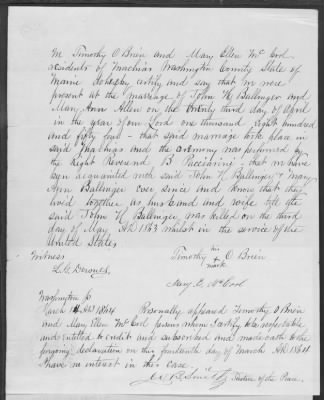 We Timothy O Brien and Mary Ellen McCool
residents of Machias Washington County State of
Maine do certify and say that we were
present at the marriage of John H. Ballinger and
Mary Ann Allen on the twenty third day of April
in the year of our Lord one thousand eight hundred
and fifty five - that said marriage took place in
said Machias and the ceremony was performed by
the Right Reverend B that we have
been acquainted with said John H. Ballinger & Mary
Ann Ballinger ever since and know that they
lived together as husband and wife till the
said John H. Ballinger was killed on the third
day of May AD 1863 whilst in the service of the
United States
Witness
his
Timothy + O Brien
mark
L. G.
Mary E. McCool
Washington ss
March 14 AD 1864 Personally appeared Timothy O Brien
and Mary Ellen McCool persons whom I certify to be respectable
and entitled to credit and subscribed and made oath to the
foregoing declaration on this fourteenth day of March AD 1864
I have no interest in this case.
Justice of the Peace.